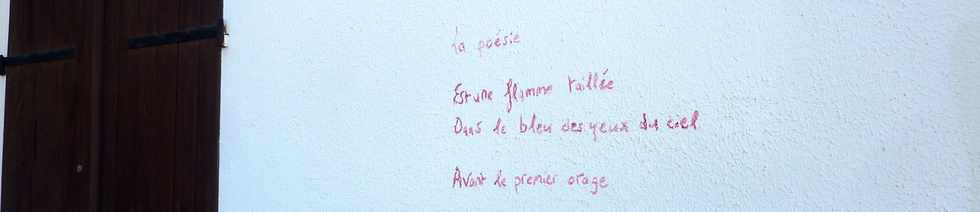 La poésie
Est une flamme taillée
Dans le bleu des yeux du ciel
Avant le premier orage